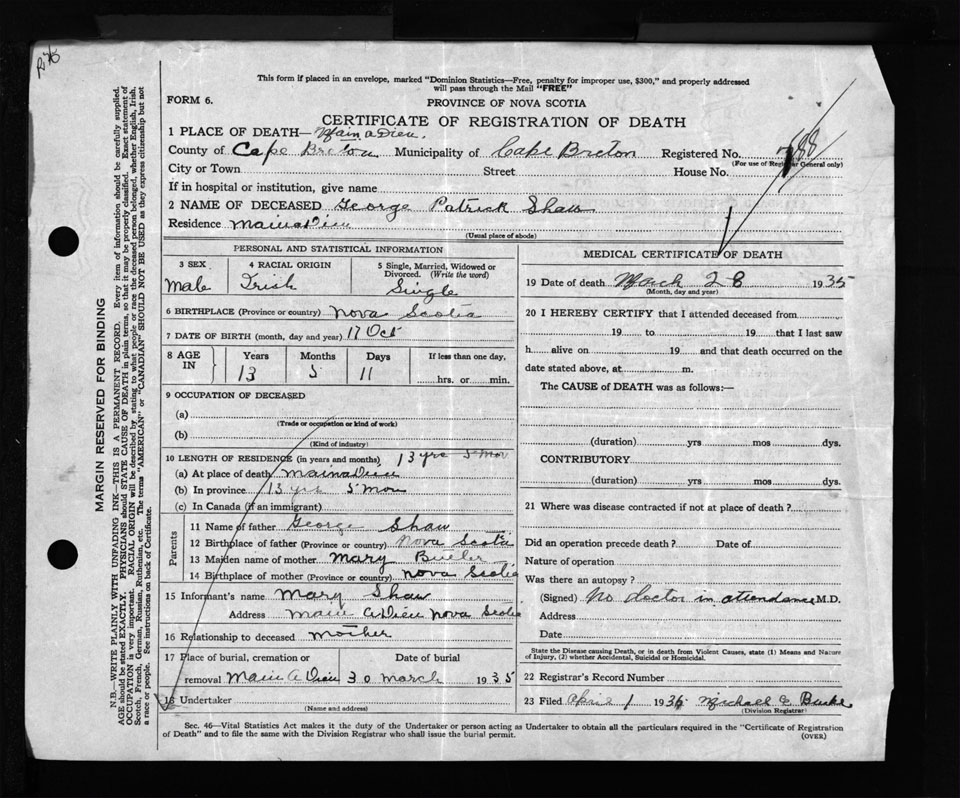 This form if placed in an envelope, marked "Dominion Statistics—Free, penalty for improper use, $300," and properly addressed
will pass through the Mail "FREE"
FORM 6.
PROVINCE OF NOVA SCOTIA
CERTIFICATE OF REGISTRATION OF DEATH
1 PLACE OF DEATH— Main a Dieu.
County of Cape Breton Municipality of Cape Breton Registered No.
(For use of Registrar General only)
City or Town Street House No.
If in hospital or institution, give name
2 NAME OF DECEASED George Patrick Shaw
Residence Mainadieu
(Usual place of abode)
PERSONAL AND STATISTICAL INFORMATION
3 SEX Male
4 RACIAL ORIGIN Irish
5 Single, Married, Widowed or Divorced. (Write the word) Single
6 BIRTHPLACE (Province or country) Nova Scotia
7 DATE OF BIRTH (month, day and year) 17 Oct
8 AGE IN Years Months Days If less than one day,
13 5 11 hrs. or min.
9 OCCUPATION OF DECEASED
(a)
(Trade or occupation or kind of work)
(b)
(Kind of industry)
10 LENGTH OF RESIDENCE (in years and months) 13 yrs 5 Mos
(a) At place of death Mainadieu
(b) In province 13 yrs 5 Mos
(c) In Canada (if an immigrant)
Parents
11 Name of father George Shaw
12 Birthplace of father (Province or country) Nova Scotia
13 Maiden name of mother Mary Butler
14 Birthplace of mother (Province or country) Nova Scotia
15 Informant's name Mary Shaw
Address Main a Dieu Nova Scotia
16 Relationship to deceased Mother
17 Place of burial, cremation or Date of burial
removal Main a Dieu 30 March 1935
18 Undertaker
(Name and address)
MEDICAL CERTIFICATE OF DEATH
19 Date of death March 28 1935
(Month, day and year)
20 I HEREBY CERTIFY that I attended deceased from
19 to 19 that I last saw
h alive on 19 and that death occurred on the
date stated above, at m.
The CAUSE of DEATH was as follows:—
(duration) yrs mos dys.
CONTRIBUTORY
(duration) yrs mos dys.
21 Where was disease contracted if not at place of death?
Did an operation precede death? Date of
Nature of operation
Was there an autopsy?
(Signed) No doctor in attendance M.D.
Address
Date
State the Disease causing Death, or in death from Violent Causes, state (1) Means and Nature
of Injury, (2) whether Accidental, Suicidal or Homicidal.
22 Registrar's Record Number
23 Filed April 1 1935 Michael Burke
(Division Registrar)
Sec. 46—Vital Statistics Act makes it the duty of the Undertaker or person acting as Undertaker to obtain all the particulars required in the "Certificate of Registration
of Death" and to file the same with the Division Registrar who shall issue the burial permit.
(OVER)
MARGIN RESERVED FOR BINDING
N.B.—WRITE PLAINLY WITH UNFADING INK—THIS IS A PERMANENT RECORD. Every item of information should be carefully supplied.
AGE should be stated EXACTLY. PHYSICIANS should STATE CAUSE OF DEATH in plain terms, so that it may be properly classified. Exact statement of
OCCUPATION is very important. RACIAL ORIGIN will be described by stating to what people or race the deceased person belonged, whether English, Irish,
Scotch, French, German, Russian, Ruthenian, etc. The terms "AMERICAN" or "CANADIAN" SHOULD NOT BE USED as they express citizenship but not
a race or people. See instructions on back of Certificate.